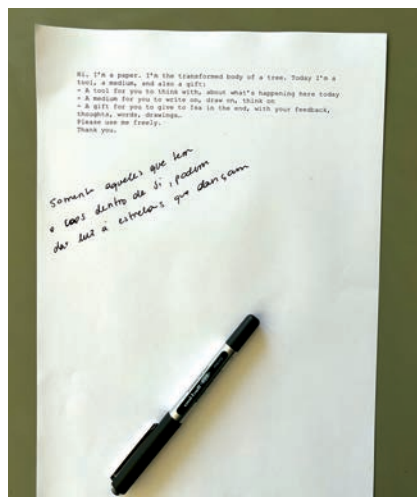 Hi, I'm a paper. I'm the transformed body of a tree. Today I'm a
tool, a medium, and also a gift:
- A tool for you to think with, about what's happening here today
- A medium for you to write on, draw on, think on
- A gift for you to give to Isa in the end, with your feedback,
thoughts, words, drawings…
Please use me freely.
Thank you.
Somente aqueles que tem
o caos dentro de si, podem
dar luz à estrelas que dançam